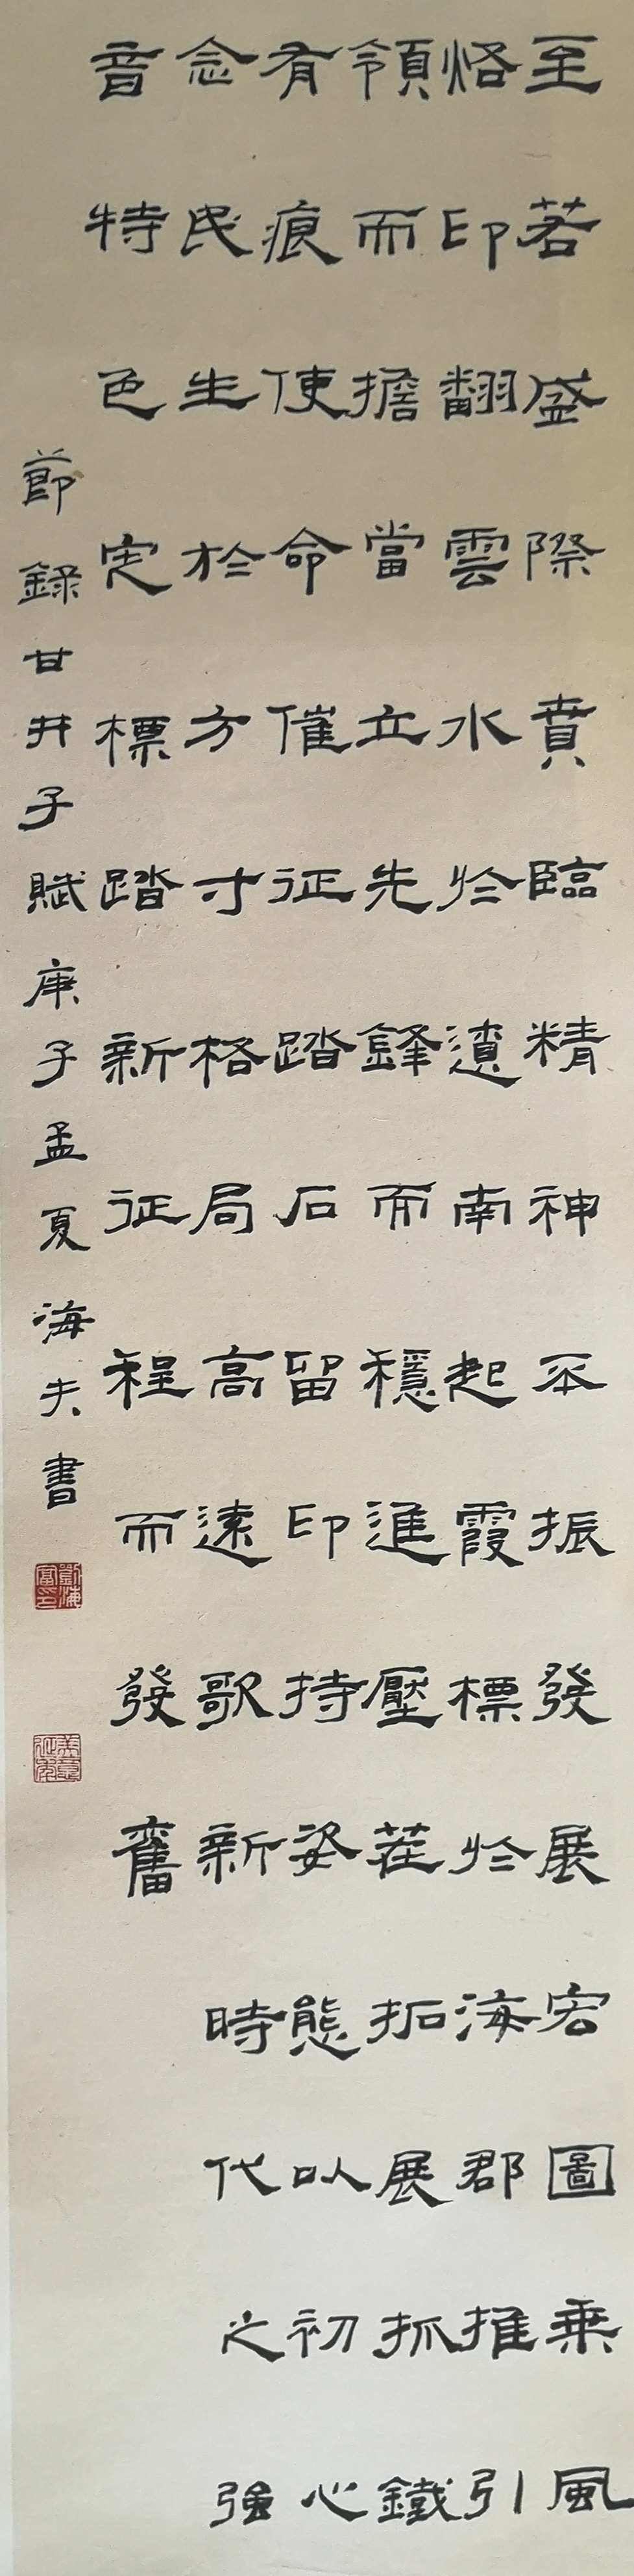 至若盛際賁臨精神丕振發展宏圖乘風
烙印翻雲水於濱南起霞標於海郡推引
領而擔當立先鋒而穩進壓茬拓展抓鐵
有痕使命催征踏石留印持姿態以初心
念民生於方寸格局高遠歌新時代之強
音特色定標踏新征程而發奮
節錄甘井子賦庚子孟夏海夫書